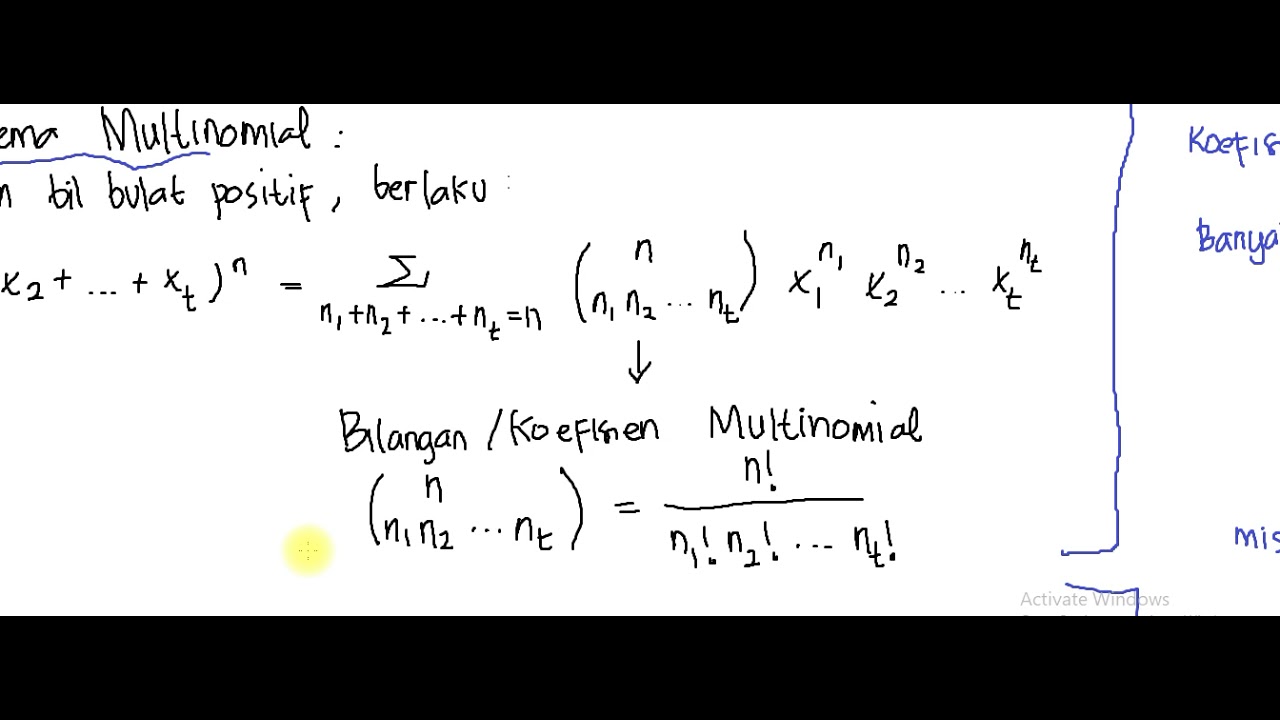 ema Multinomial :
n bil bulat positif, berlaku :
x₂ + ... + x_t)ⁿ = Σ_{n₁+n₂+...+n_t=n} (n / n₁ n₂ ... n_t) x₁^{n₁} x₂^{n₂} ... x_t^{n_t}
↓
Bilangan / Koefisien Multinomial
(n / n₁ n₂ ... n_t) = n! / n₁! n₂! ... n_t!
Koefis
Banya
mis
Activate Windows